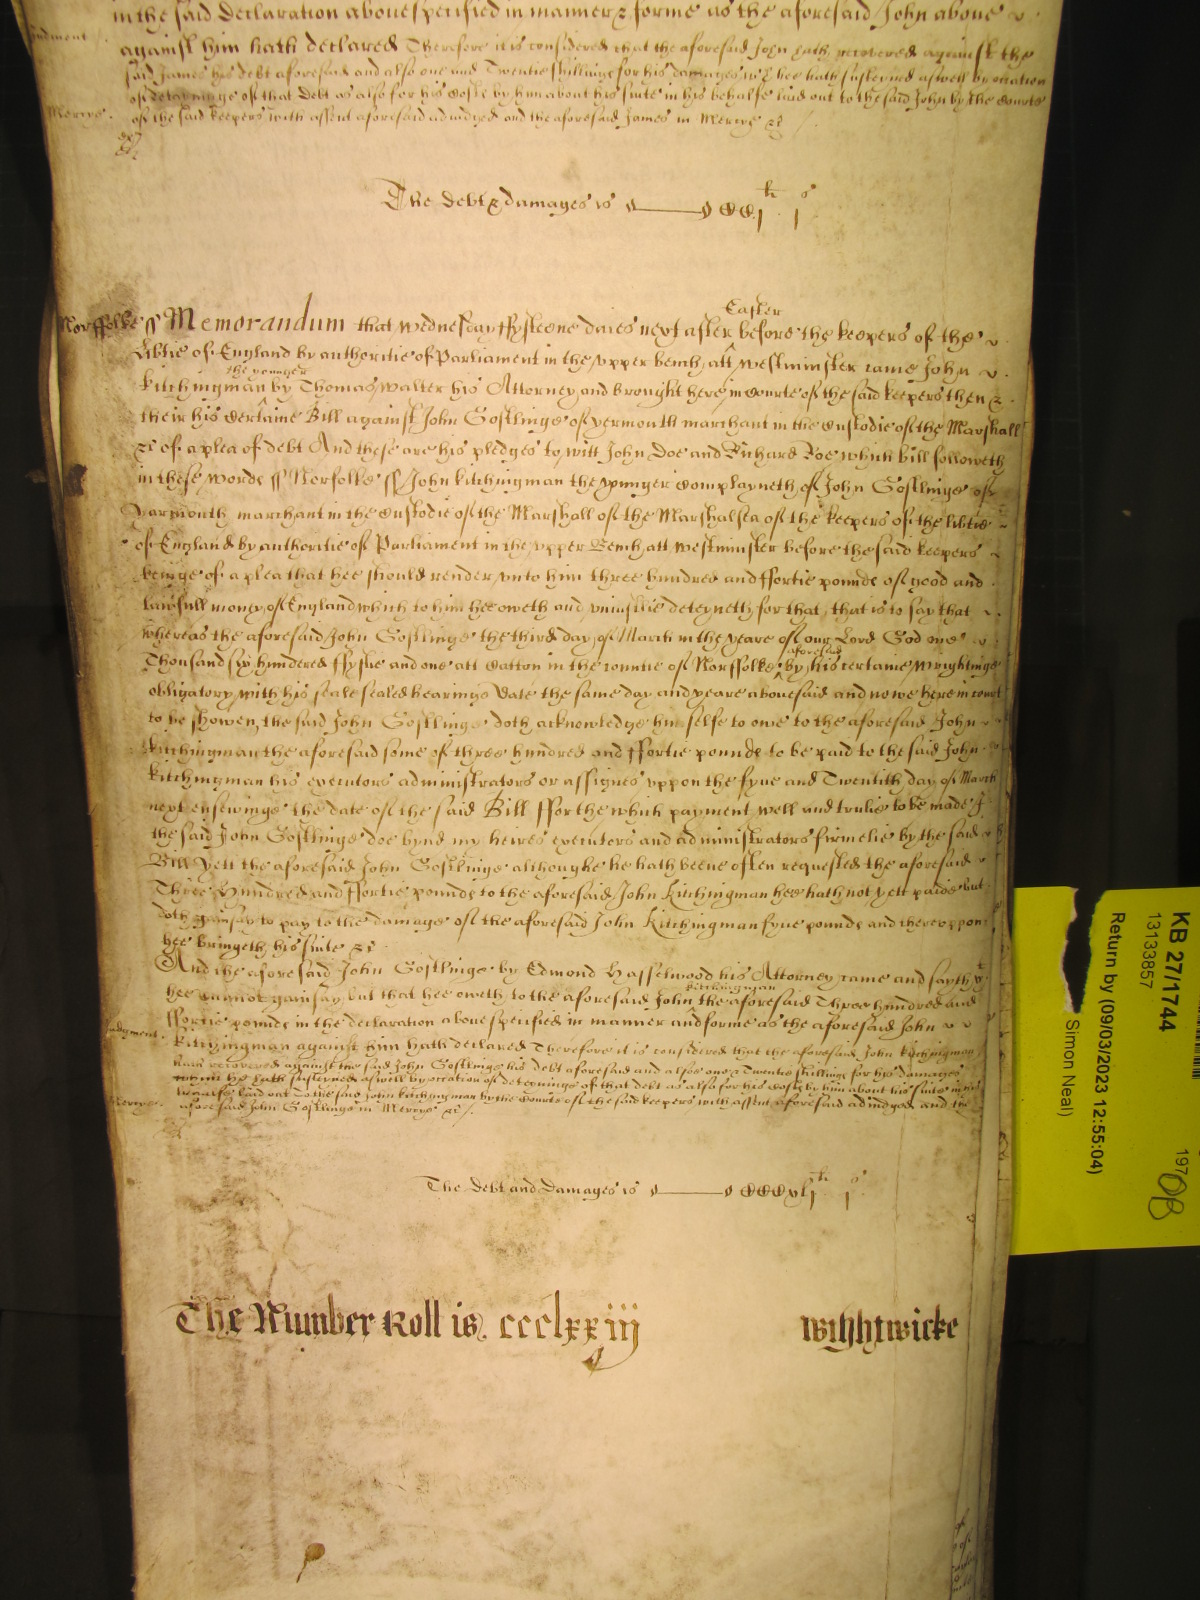 in the said declaration aboue specified in manner & forme as the aforesaid John aboue
Judment
against him hath declared Therefore it is considered that the aforesaid John hath recovered against the
said James his debt aforesaid and also one and Twentie shillings for his damages wch hee hath susteyned aswell by occation
of deteyninge of that debt as also for his Costs by him about his suite in his behalfe laid out to the said John by the Courte
Mercye
of the said keepers with assent aforesaid adiudged and the aforesaid James in Mercye &c
The debt & damages is CCj li j s
Norffolke ss Memorandum that wednesday ffysteene daies next after Easter before the keepers of the
Libtie of England by authoritie of Parliament in the vpper bench att westminster came John
Kitchingman the younger by Thomas Walter his Attorney and brought here in Courte of the said keepers then &
their his certaine Bill against John Gostlinge of yermouth marchant in the Custodie of the Marshall
&c of a plea of debt And these are his pledges to witt John Doe and Richard Roe which bill followeth
in these words ss Norfolke ss John Kitchingman the younger Complayneth of John Gostlinge of
Yarmouth marchant in the Custodie of the Marshall of the Marshalsea of the keepers of the libtie
of England by authoritie of Parliament in the vpper Bench att westminster before the said keepers
beinge of a plea that hee should render vnto him three hundred and ffortie pounds of good and
lawfull money of England which to him hee oweth and vniustlie deteyneth for that, that is to say that
whereas the aforesaid John Gostlinge the third day of March in the yeare of our Lord God one
Thousand six hundered ffyftie and one att Catton in the countie of Norffolke aforesaid by his certaine wrightinge
obligatory with his seale sealed bearinge date the same day and yeare abouesaid and nowe here in court
to be showen, the said John Gostlinge doth acknowledge himselfe to owe to the aforesaid John
Kitchingman the aforesaid some of three hundred and ffortie pounds to be paid to the said John
Kitchingman his executors administrators or assignes vppon the fyue and Twentith day of March
next ensewinge the date of the said Bill ffor the which payment well and trulie to be made I
the said John Gostlinge doe bynd my heires executers and administrators firmelie by the said
Bill Yett the aforesaid John Gostlinge althoughe he hath beene often requested the aforesaid
Three Hundred and ffortie pounds to the aforesaid John Kitchingman hee hath not yett paide but
doth gainsay to pay to the damage of the aforesaid John Kitchingman fyue pounds and therevppon
hee bringeth his suite &c
And the aforesaid John Gostlinge by Edmond Hasselwood his Attorney came and sayth yt
hee cannot gainsay but that hee oweth to the aforesaid John Kitchingman the aforesaid Three hundred and
ffortie pounds in the declaration aboue specified in manner and forme as the aforesaid John
Judgment
Kitchingman against him hath declared Therefore it is considered that the aforesaid John Kitchingman
hath recovered against the said John Gostlinge his debt aforesaid and also one & Twentie shillinge for his damages
which he hath susteyned aswell by occation of deteoninge of that debt as also for his Costs by him about his suite in his
behalfe laid out to the said John Kitchingman by the Courte of the said keepers with assent aforesaid adiudged and the
Mercye
aforesaid John Gostlinge in Mercye &c
The debt and Damages is CCCxlj li j s
The Number Roll is ccclxxiij
wightwicke
KB 27/1744
13133857
Return by (09/03/2023 12:55:04)
Simon Neal)